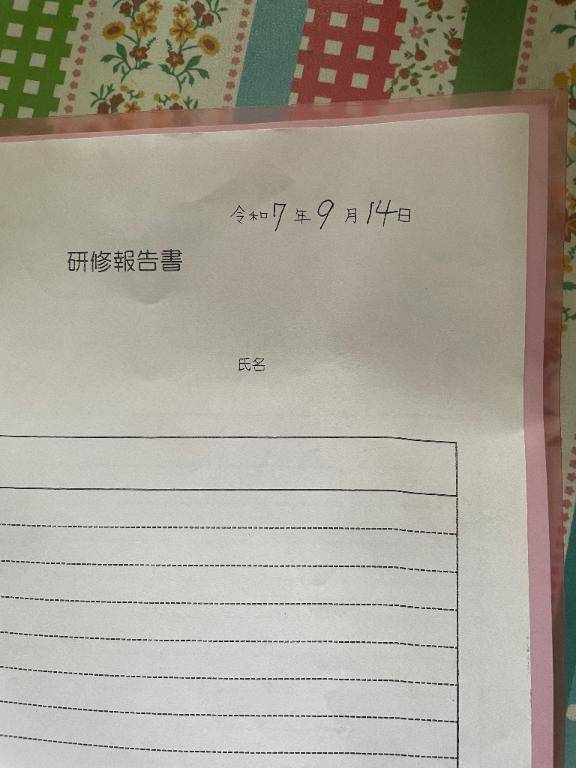 令和7年9月14日
研修報告書
氏名